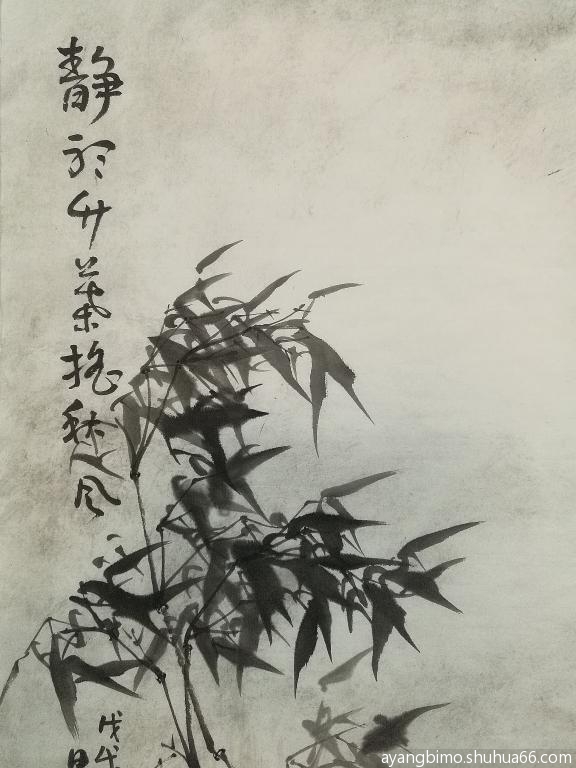 静於竹葉搖愁风
戊戌
ayangbimo.shuhua66.com